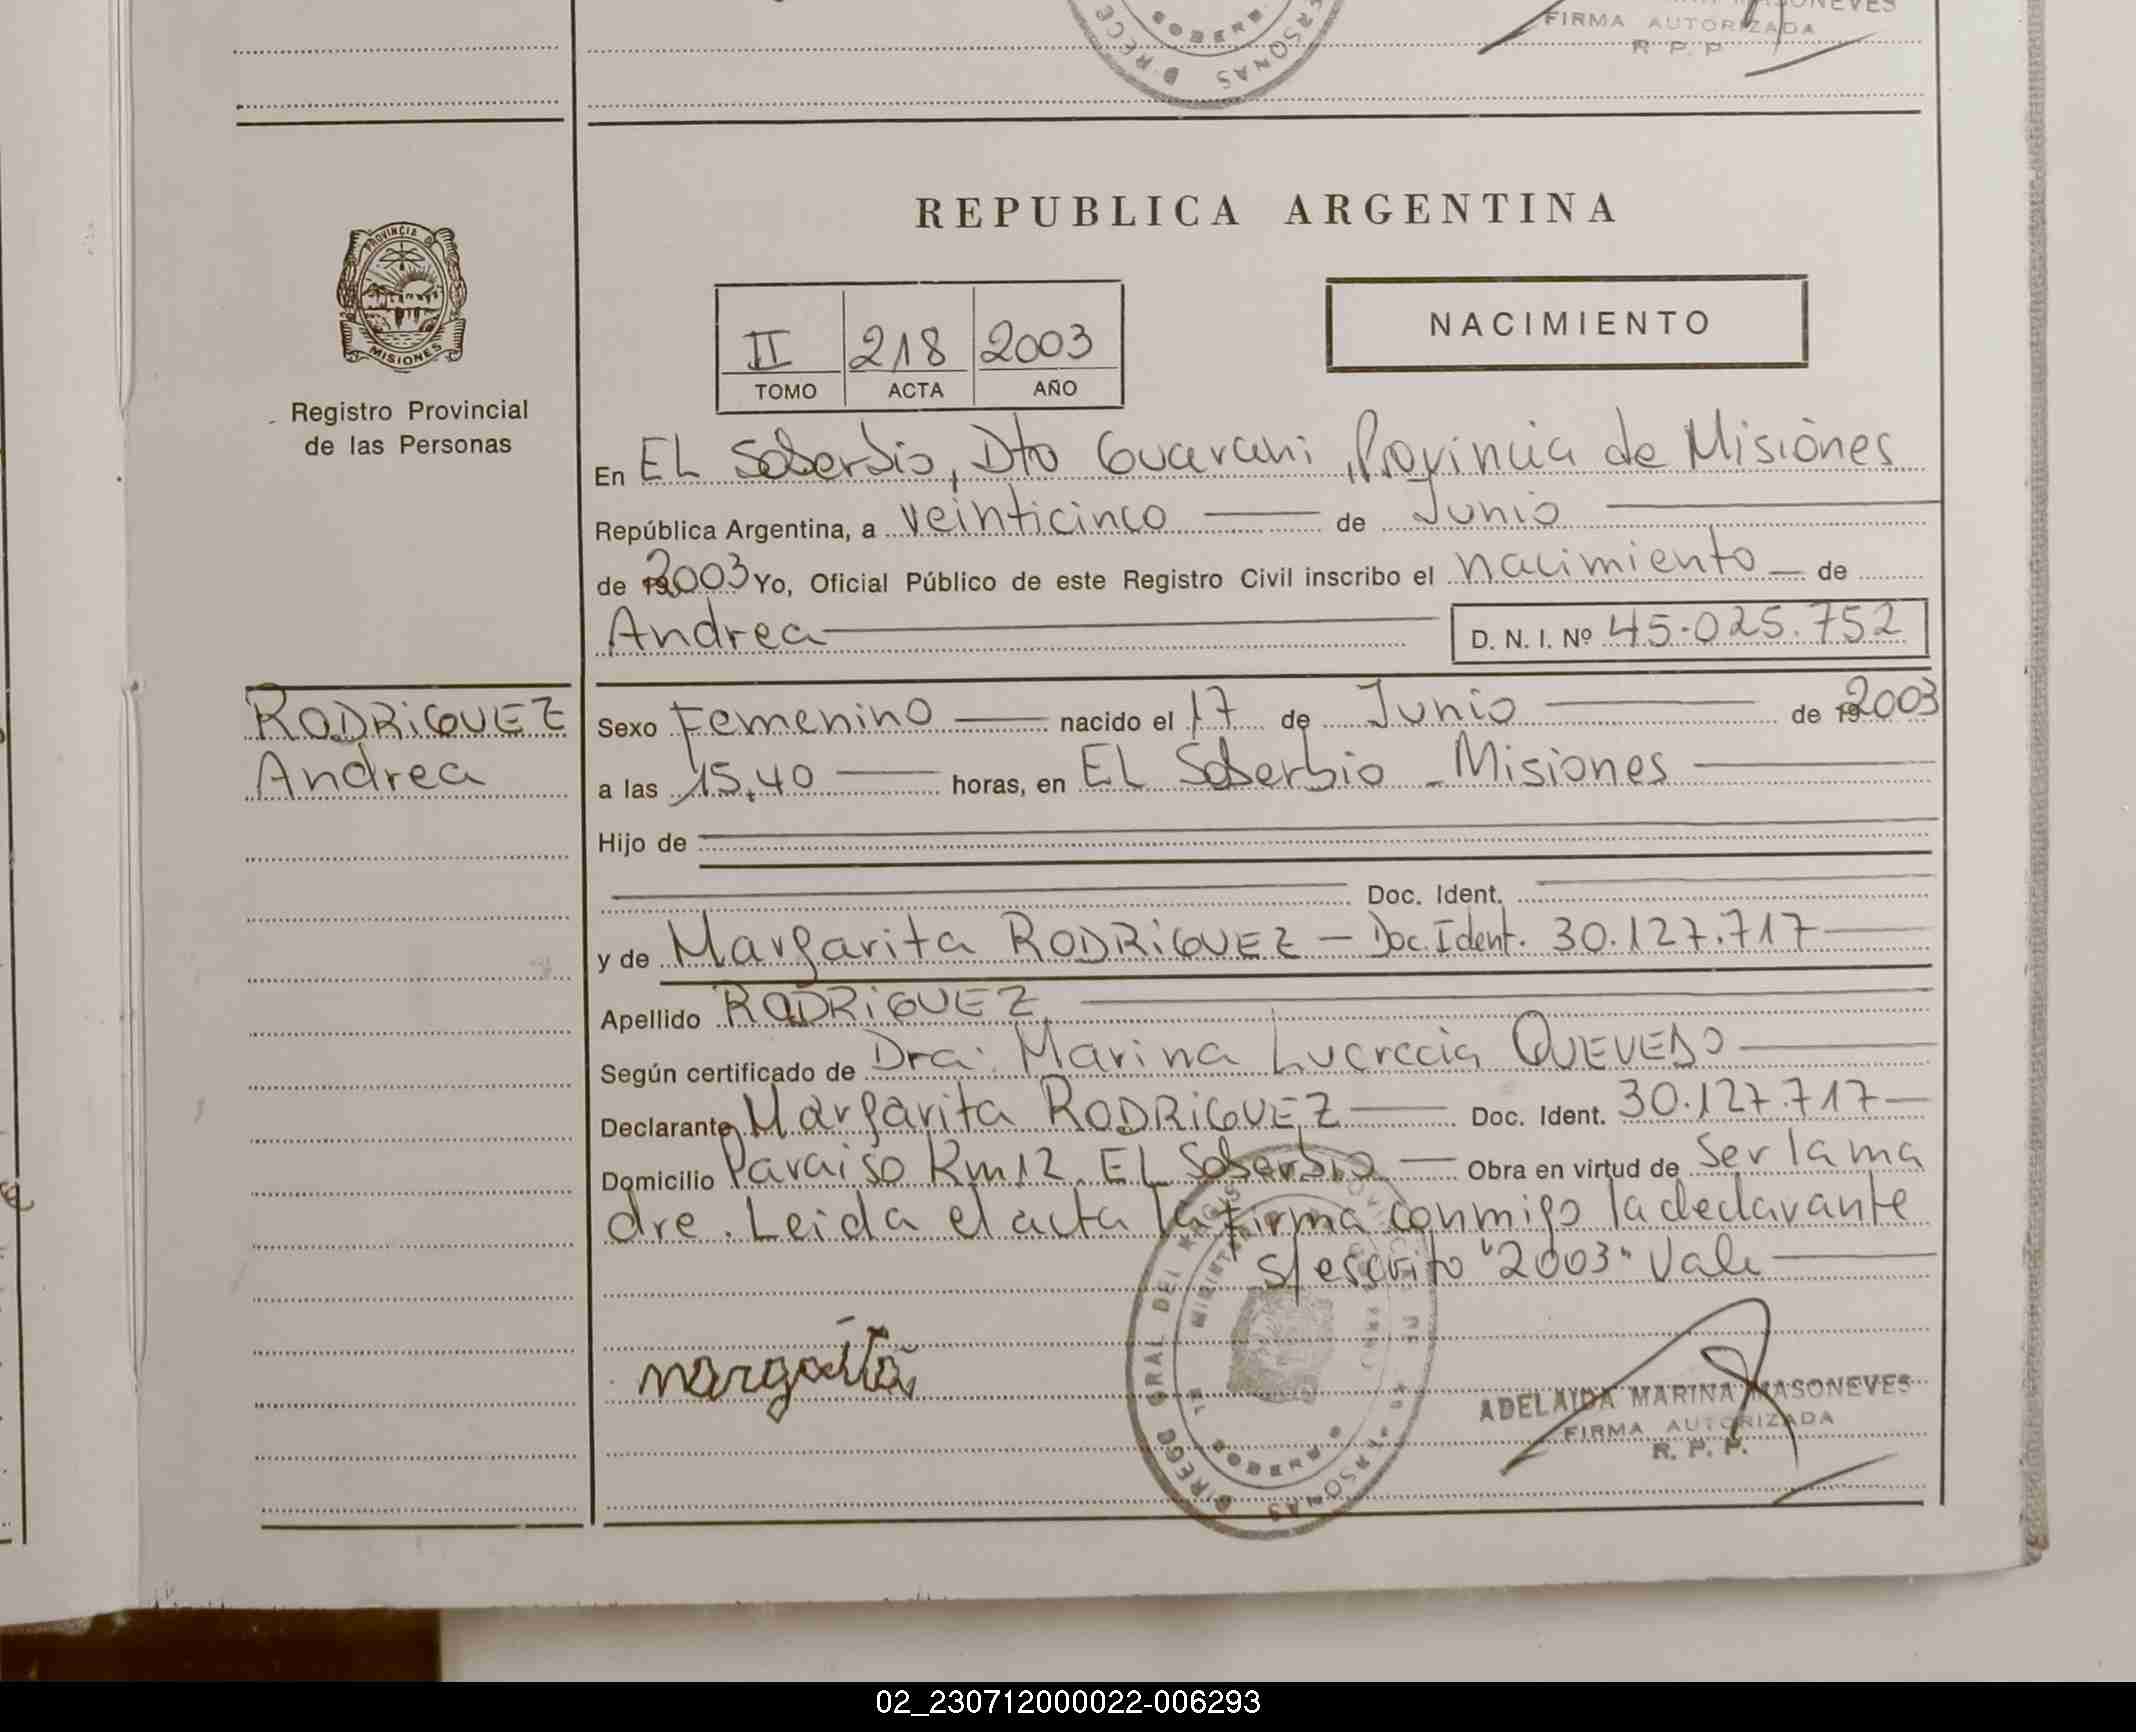 FIRMA AUTORIZADA
R. P. P.
REPUBLICA ARGENTINA
PROVINCIA DE
MISIONES
Registro Provincial
de las Personas
II 218 2003
TOMO ACTA AÑO
NACIMIENTO
En EL Soberbio, Dto Guarani, Provincia de Misiones
República Argentina, a veinticinco de Junio
de 2003 Yo, Oficial Público de este Registro Civil inscribo el nacimiento de
Andrea D. N. I. Nº 45.025.752
RODRIGUEZ
Andrea
Sexo Femenino nacido el 17 de Junio de 2003
a las 15,40 horas, en EL Soberbio - Misiones
Hijo de
Doc. Ident.
y de Margarita RODRIGUEZ - Doc. Ident. 30.127.717
Apellido RODRIGUEZ
Según certificado de Dra: Marina Lucrecia QUEVEDO
Declarante Margarita RODRIGUEZ Doc. Ident. 30.127.717
Domicilio Paraiso Km 12. EL Soberbio Obra en virtud de Ser la ma
dre. Leida el acta la firma conmigo la declarante
s/escrito "2003" Vale
margarita
ADELAIDA MARINA MASONEVES
FIRMA AUTORIZADA
R. P. P.
02_230712000022-006293